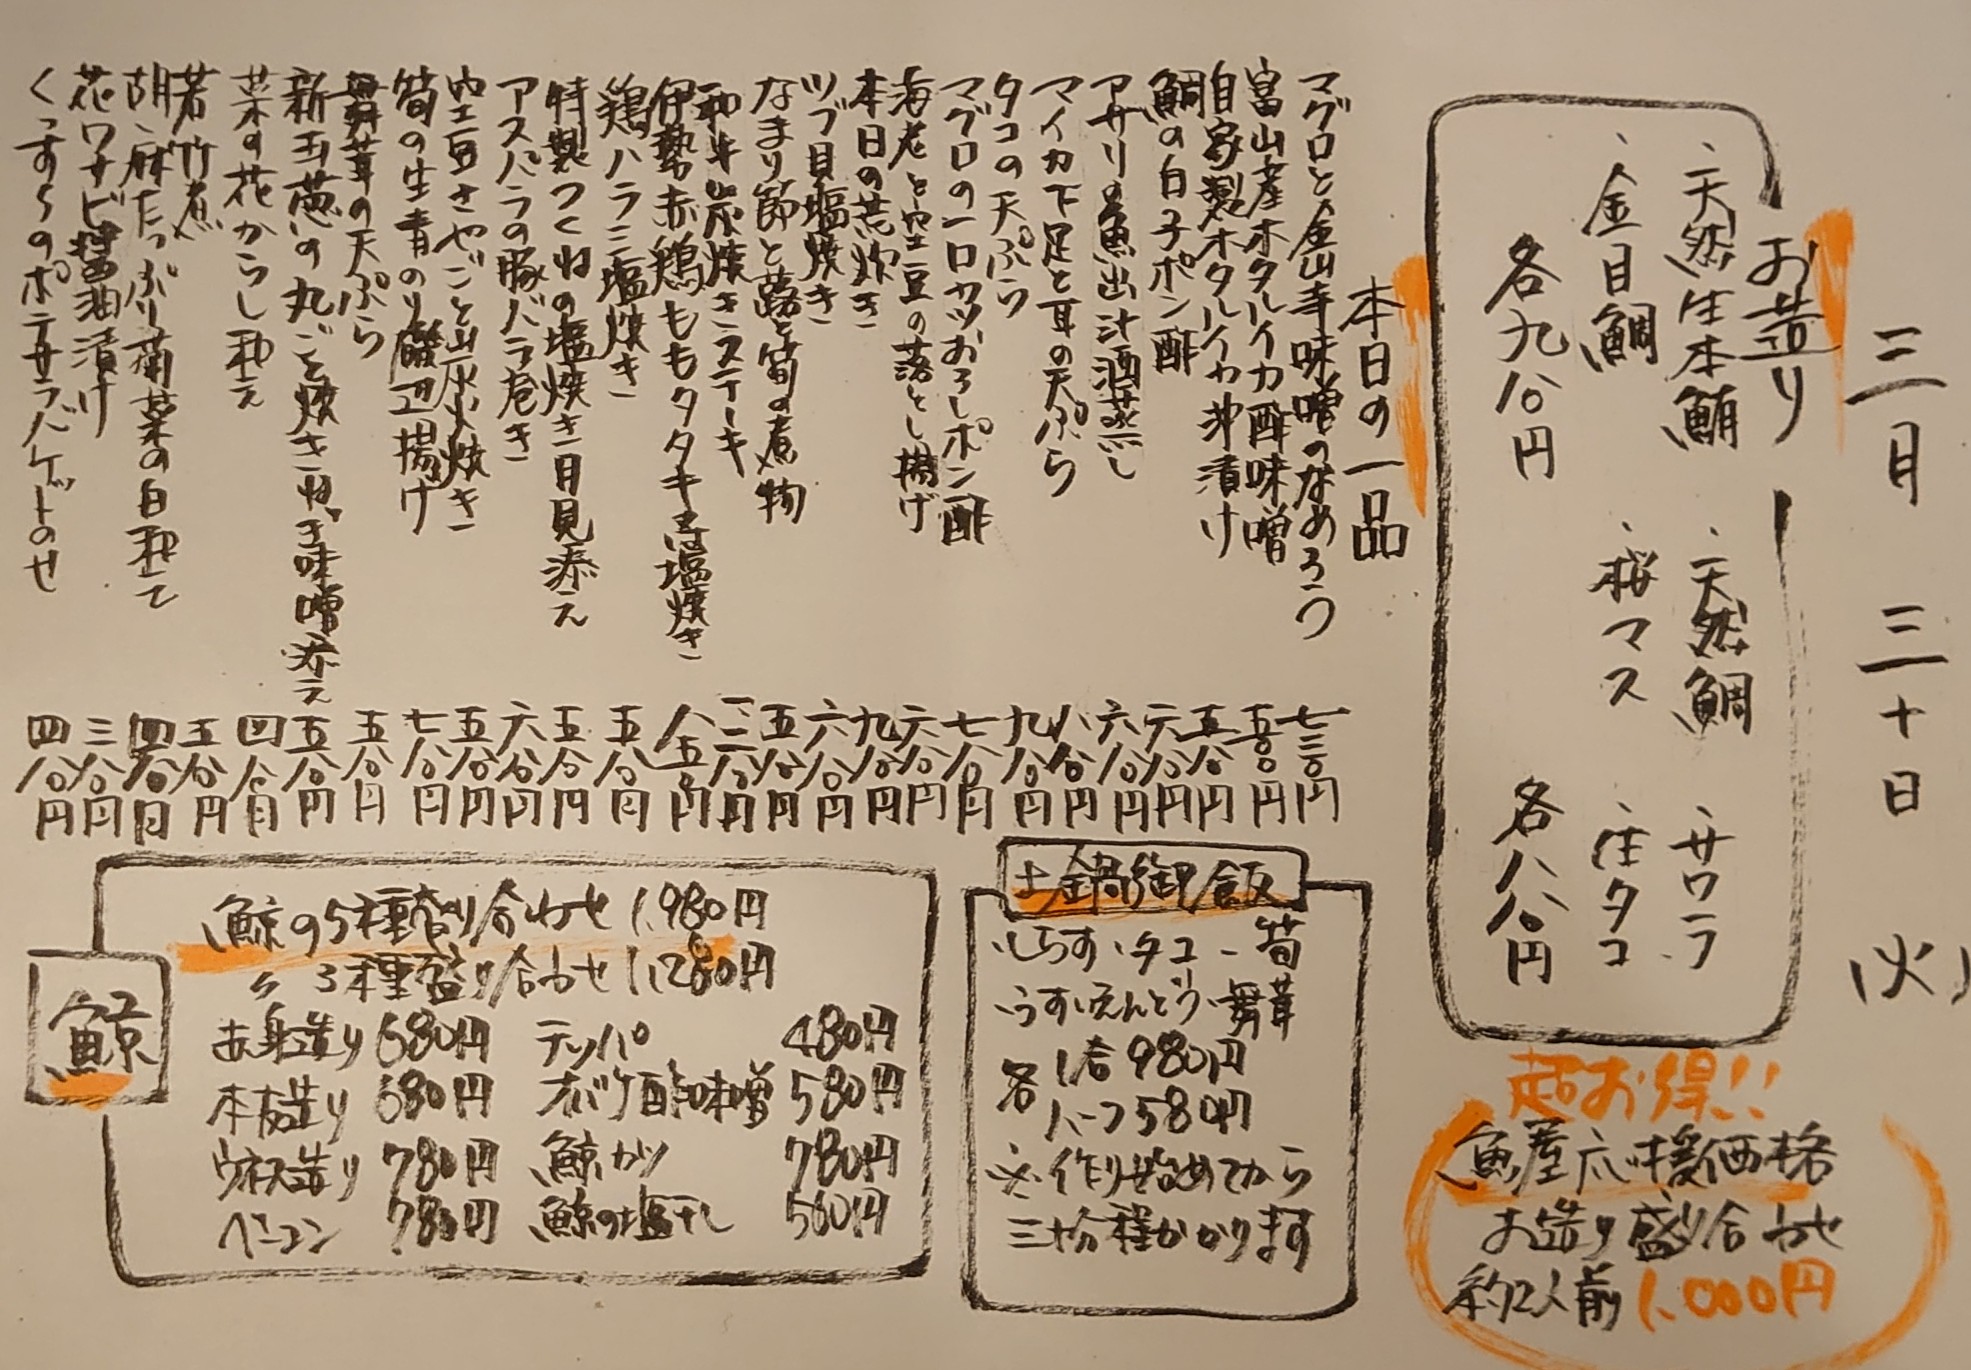 三月 三十日 (火)
お造り
・天然生本鮪 ・天然鯛 ・サワラ
・金目鯛 ・桜マス ・生タコ
各九八〇円 各八八〇円
超お得!!
魚屋応援価格
お造り盛り合わせ
約2人前 1,000円
本日の一品
マグロと金山寺味噌のなめろう 七三〇円
富山産ホタルイカ酢味噌 五八〇円
自家製ホタルイカ沖漬け 五八〇円
鯛の白子ポン酢 六八〇円
アサリの魚出汁酒蒸し 六八〇円
マイカ下足と耳の天ぷら 八八〇円
タコの天ぷら 九八〇円
マグロの一口カツおろしポン酢 七八〇円
海老と空豆の落とし揚げ 六八〇円
本日の荒炊き 九八〇円
ツブ貝塩焼き 六八〇円
なまり節と蕗と筍の煮物 五八〇円
和牛炭焼きステーキ
伊勢赤鶏ももタタキ風塩焼き 八五〇円
鶏ハラミ塩焼き 五八〇円
特製つくねの塩焼き月見添え 五八〇円
アスパラの豚バラ巻き 六八〇円
空豆さやごと炭火焼き 五八〇円
筍の生青のり磯辺揚げ 七八〇円
舞茸の天ぷら 五八〇円
新玉葱の丸ごと焼きねぎ味噌添え 五八〇円
菜の花からし和え 四八〇円
若竹煮 五八〇円
胡麻たっぷり菊菜の白和え 四八〇円
花ワサビ醤油漬け 三八〇円
くっすんのポテサラバケットのせ 四八〇円
土鍋御飯
・しらす・タコ・筍
・うすいえんどう・舞茸
各 1合980円
ハーフ580円
※作り始めてから
三十分程かかります
鯨
鯨の5種盛り合わせ 1,980円
〃 3種盛り合わせ 1,280円
赤身造り 680円 テッパ 480円
本皮造り 680円 オバケ酢味噌 580円
ウネス造り 780円 鯨カツ 780円
ベーコン 780円 鯨の塩干し 560円